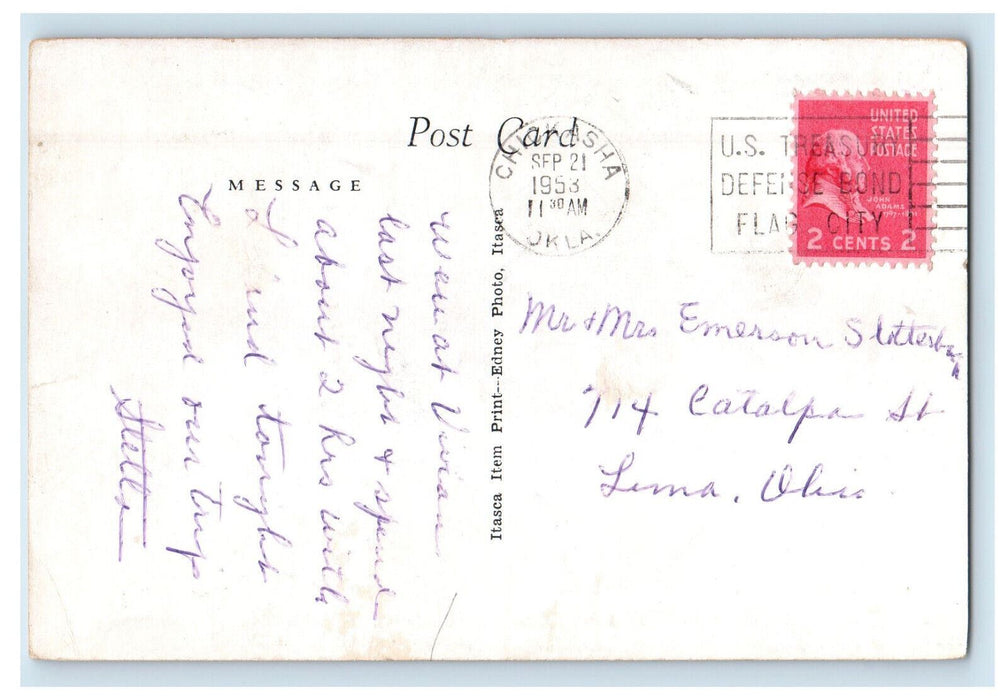 Post Card
MESSAGE
CHICKASHA
SEP 21
1953
11 30 AM
OKLA.
U.S. TREASURY
DEFENSE BOND
FLAG CITY
UNITED
STATES
POSTAGE
JOHN
ADAMS
2 CENTS 2
were at Vivian
last night & spend
about 2 hrs with
tonight
Enjoyed our trip
Stella
Itasca Item Print---Edney Photo, Itasca
Mr & Mrs Emerson Slotterbugh
714 Catalpa St
Lima, Ohio